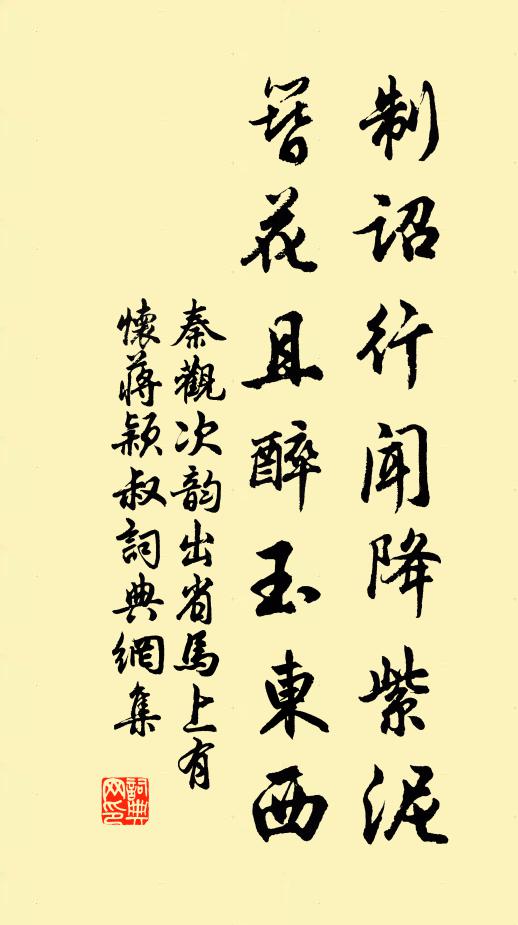 制詔行聞降紫泥
簪花且醉玉東西
秦觀次韵出省馬上有
懷蔣穎叔詞典網集
詞典
网印